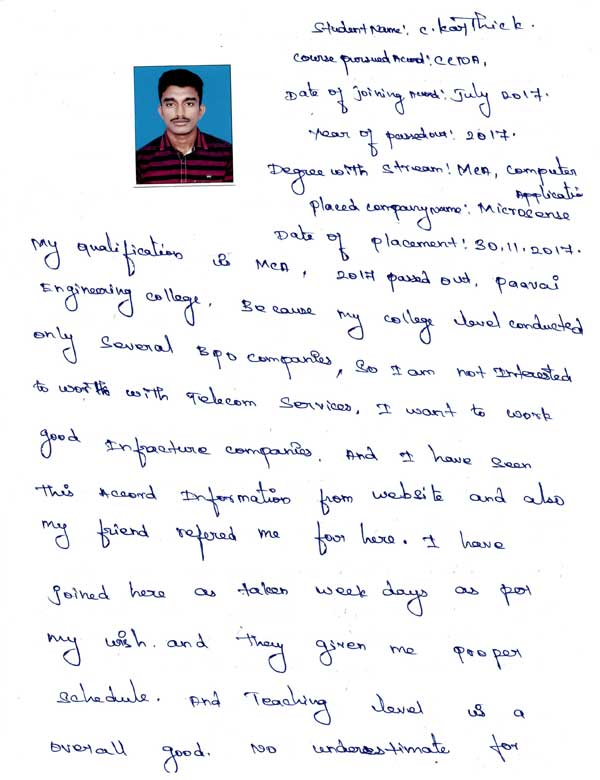 Student Name: C. Karthick.
Course pursued Accord: CCIDA,
Date of joining Accord: July 2017.
Year of passedout: 2017.
Degree with stream: MCA, Computer
Applicatio
Placed company name: Microsense
Date of placement: 30.11.2017.
My qualification is MCA, 2017 passed out, paavai
Engineering college. Because my college level conducted
only several BPO companies, So I am not Interested
to work with Telecom Services. I want to work
good Infracture companies. And I have seen
this Accord Information from website and also
my friend refered me for here. I have
joined here as taken week days as per
my wish. and they given me proper
schedule. And Teaching level is a
overall good. No underestimate for